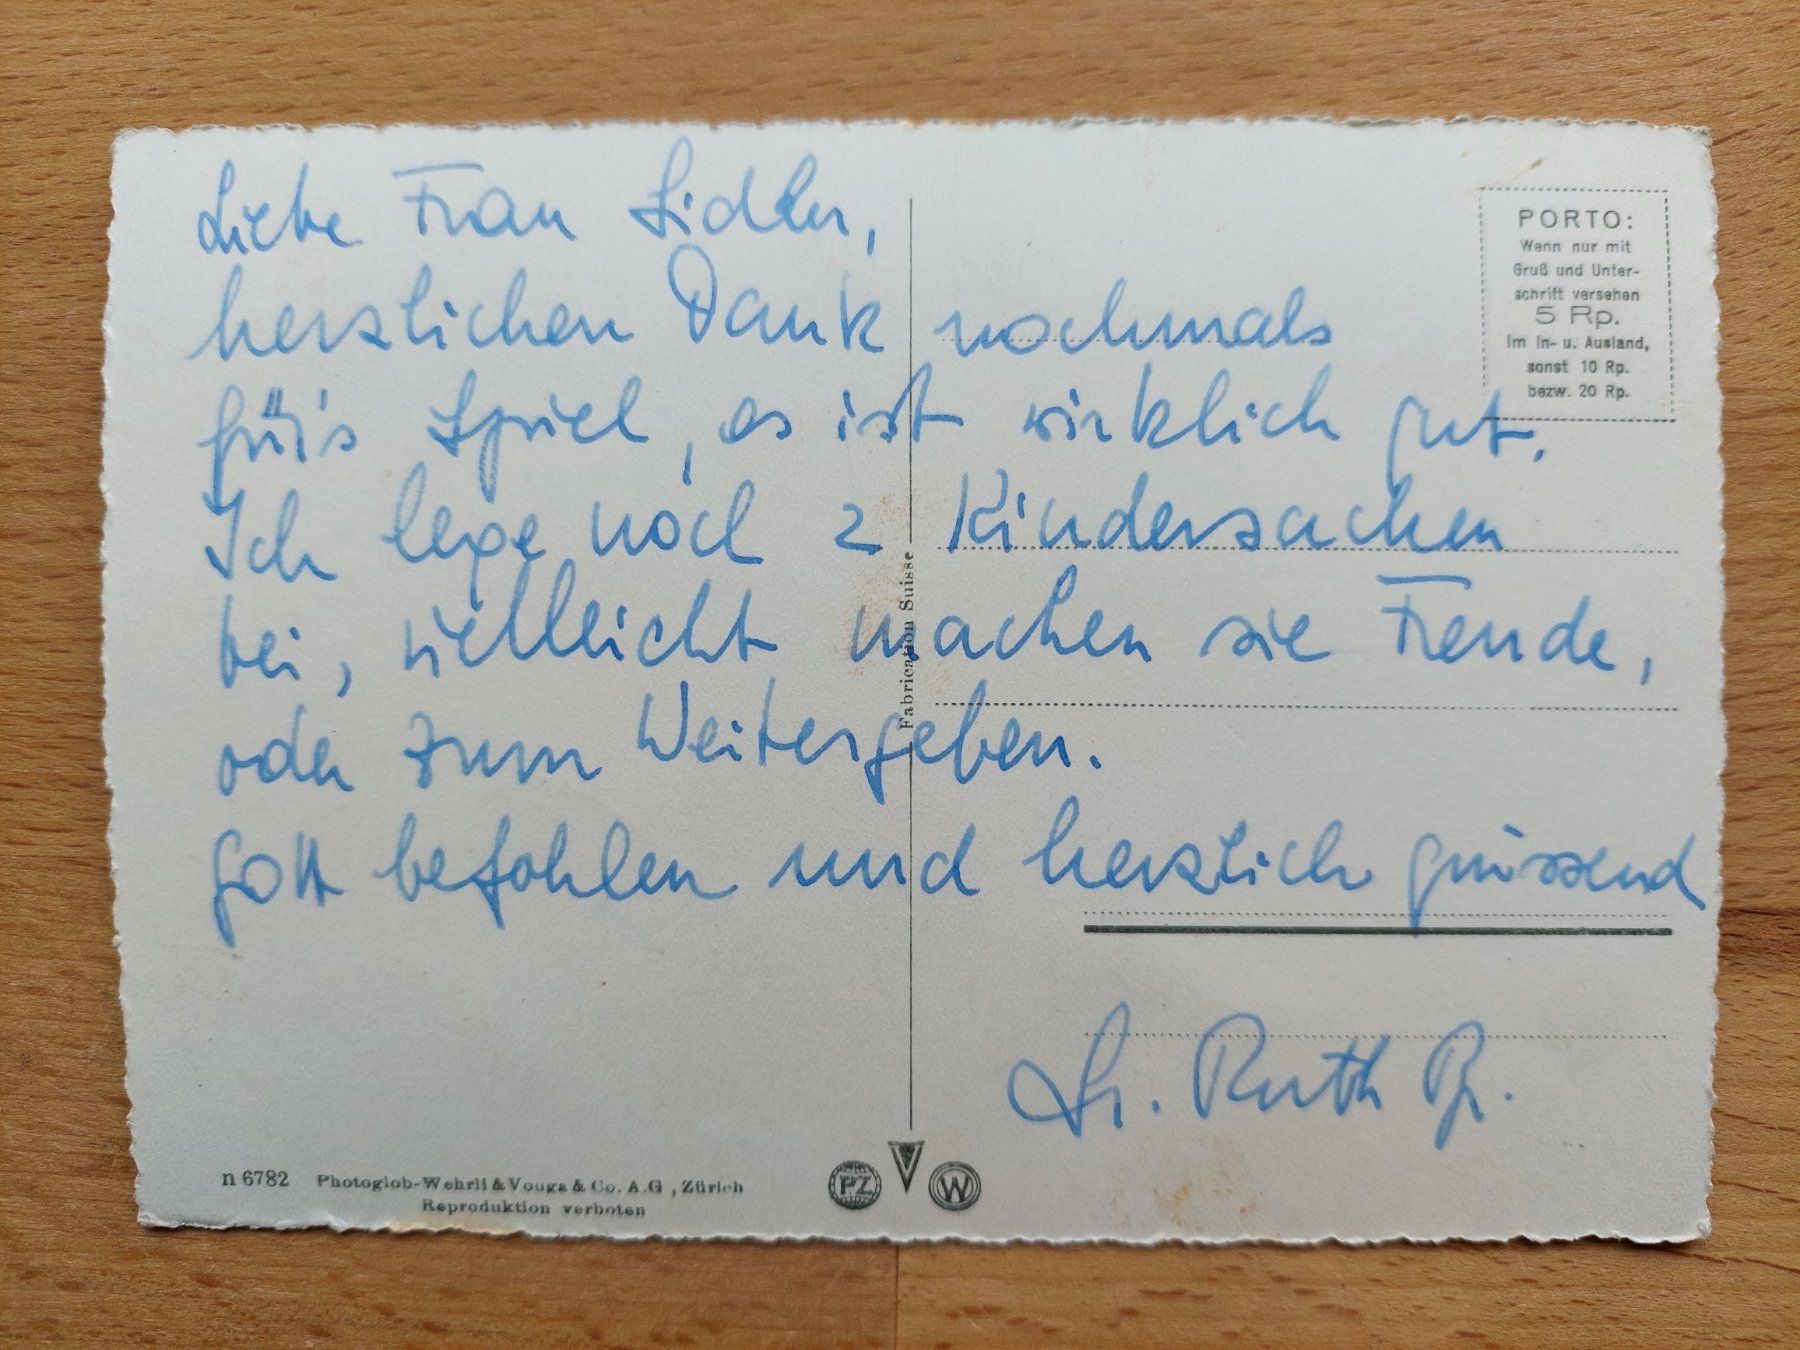 Liebe Frau Sidler,
herzlichen Dank nochmals
für's Spiel, es ist wirklich gut.
Ich lege noch 2 Kindersachen
bei, vielleicht machen sie Freude,
oder zum Weitergeben.
Gott befohlen und herzlich grüssend
Sr. Ruth
PORTO:
Wenn nur mit
Gruß und Unter-
schrift versehen
5 Rp.
im In- u. Ausland,
sonst 10 Rp.
bezw. 20 Rp.
Fabrication Suisse
n 6782 Photoglob-Wehrli & Vouga & Co. A.G., Zürich
Reproduktion verboten
PZ
V
W